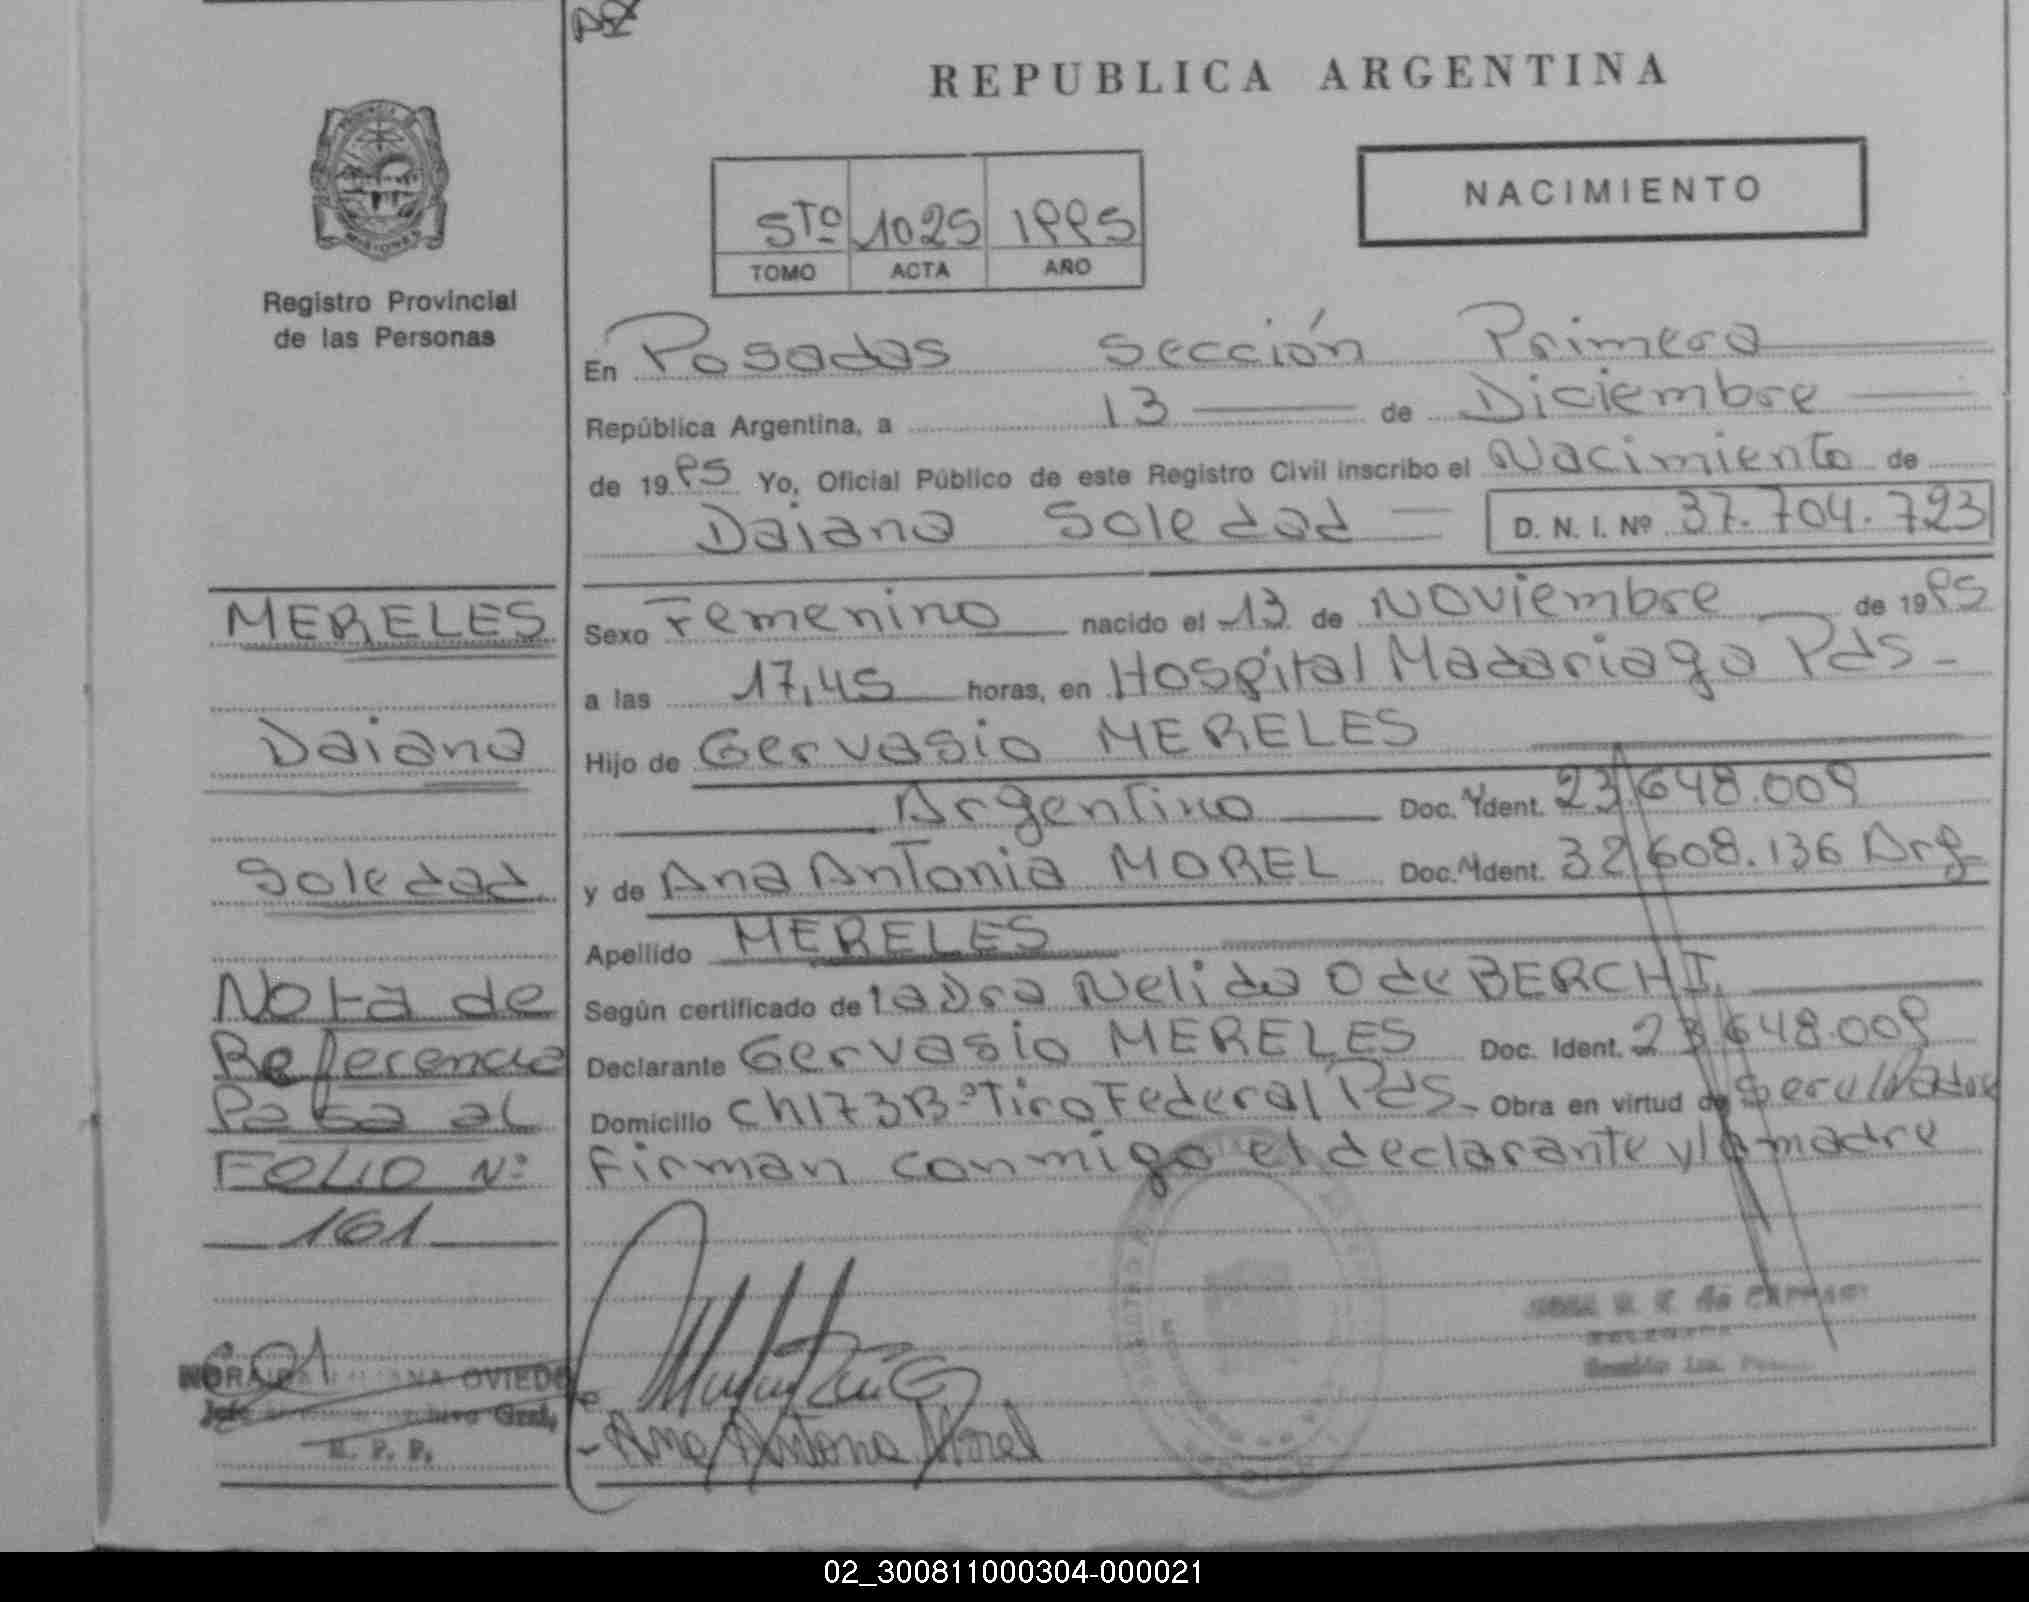 REPUBLICA ARGENTINA
NACIMIENTO
5to 1025 1995
TOMO ACTA AÑO
PROVINCIA
MISIONES
Registro Provincial
de las Personas
En Posadas Sección Primera
República Argentina, a 13 de Diciembre
de 1995 Yo, Oficial Público de este Registro Civil inscribo el Nacimiento de
Daiana Soledad D. N. I. Nº 37.704.723
Sexo Femenino nacido el 13 de Noviembre de 1995
a las 17,45 horas, en Hospital Madariaga Pds-
Hijo de Gervasio MERELES
Argentino Doc. Ydent. 23.648.009
y de Ana Antonia MOREL Doc. Ydent. 32.608.136 Arg
Apellido MERELES
Según certificado de la Dra Nelida O de BERCHI
Declarante Gervasio MERELES Doc. Ident. 23.648.009
Domicilio Ch 173 Bº Tiro Federal Pds- Obra en virtud de
Firman conmigo el declarante y la madre
MERELES
Daiana
Soledad
Nota de
Referencia
Pasa al
FOLIO Nº
161
OVIEDO
Jefe Gral.
R. P. P.
Ana Antonia Morel
02_300811000304-000021